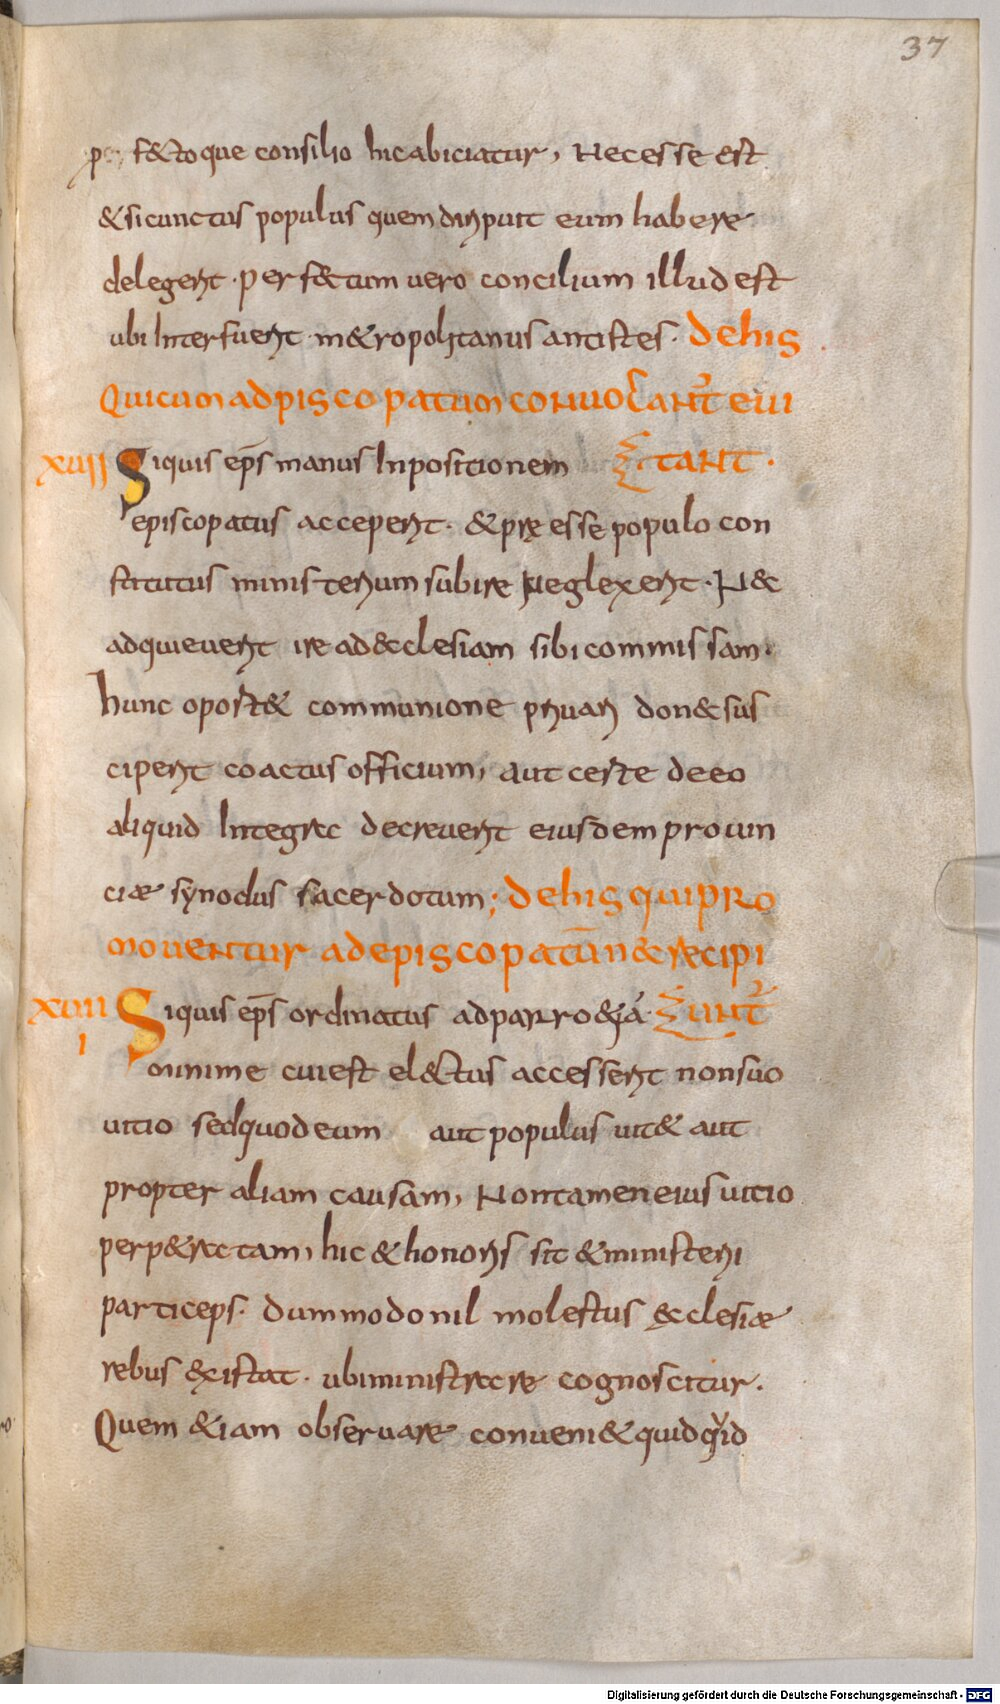 37
perf&toque consilio hic abiciatur, Necesse est
& si cunctus populus quem diripuit eum habere
delegerit · perf&tum vero concilium illud est
ubi Interfuerit m&ropolitanus antistes · De his
Qui cum ad piscopatum convocant' evi
XVII Si quis ep̄s manus Inpositionem tant ·
episcopatus acceperit · & pręesse populo con
stitutus ministerium subire Neglexerit · N&
adquieverit ire ad &clesiam sibi commissam ·
hunc oport& communione privari don& sus
ciperit coactus officium, aut certe de eo
aliquid Integrae decreverit eiusdem provin
ciae synodus sacerdotum; De his qui pro
moventur ad episcopatū n& recipi
XVIII Si quis ep̄s ordinatus ad parro&iā unt'
minime cui est el&tus accesserit non suo
vitio sed quod eum aut populus vit& aut
propter aliam causam, Non tamen eius vitio
perp&ratam, hic & honoris sit & ministerii
particeps · dummodo nil molestus &clesiae
rebus existat · ubi ministrare cognoscitur ·
Quem &iam observare conveni& quidquid
Digitalisierung gefördert durch die Deutsche Forschungsgemeinschaft - DFG